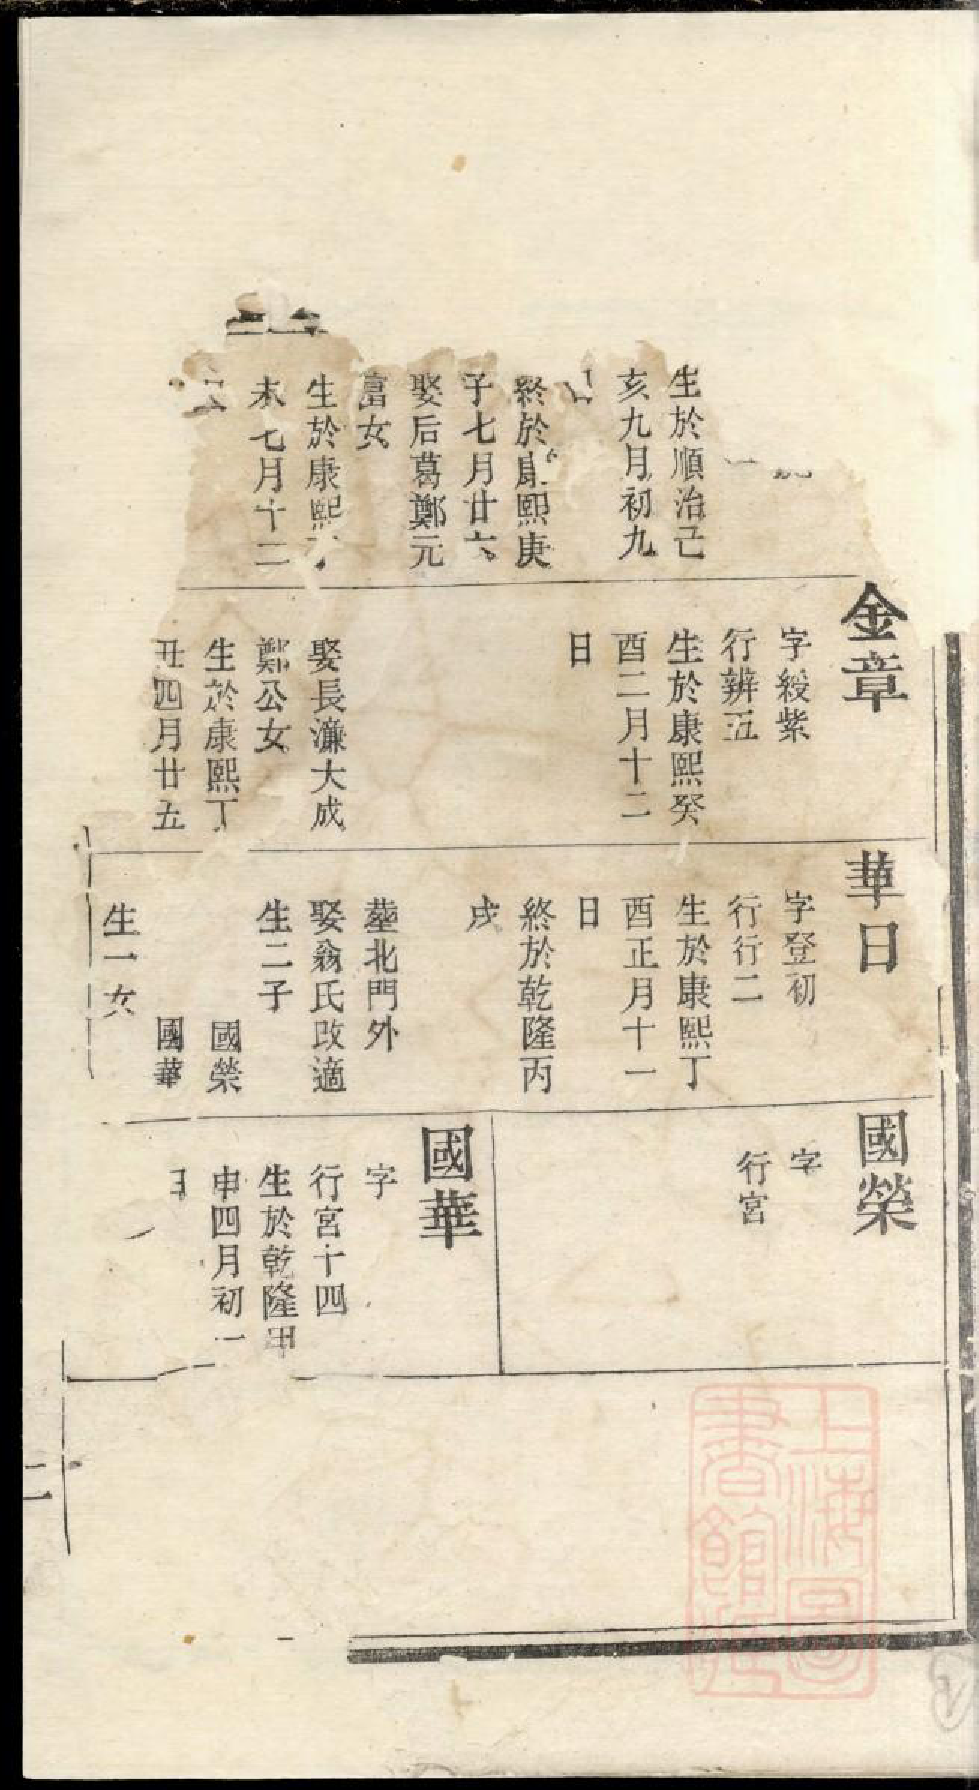 生於順治己
亥九月初九
終於康熙庚
子七月廿六
娶后葛鄭元
富女
生於康熙
未七月十二
金章
字綬紫
行辨五
生於康熙癸
酉二月十二
日
娶長濂大成
鄭公女
生於康熙丁
丑四月廿五
華日
字登初
行行二
生於康熙丁
酉正月十一
日
終於乾隆丙
戌
塟北門外
娶翁氏改適
生二子
國榮
國華
生一女
國榮
字
行宮
國華
字
行宮十四
生於乾隆甲
申四月初一
日
二
上海圖
書館藏